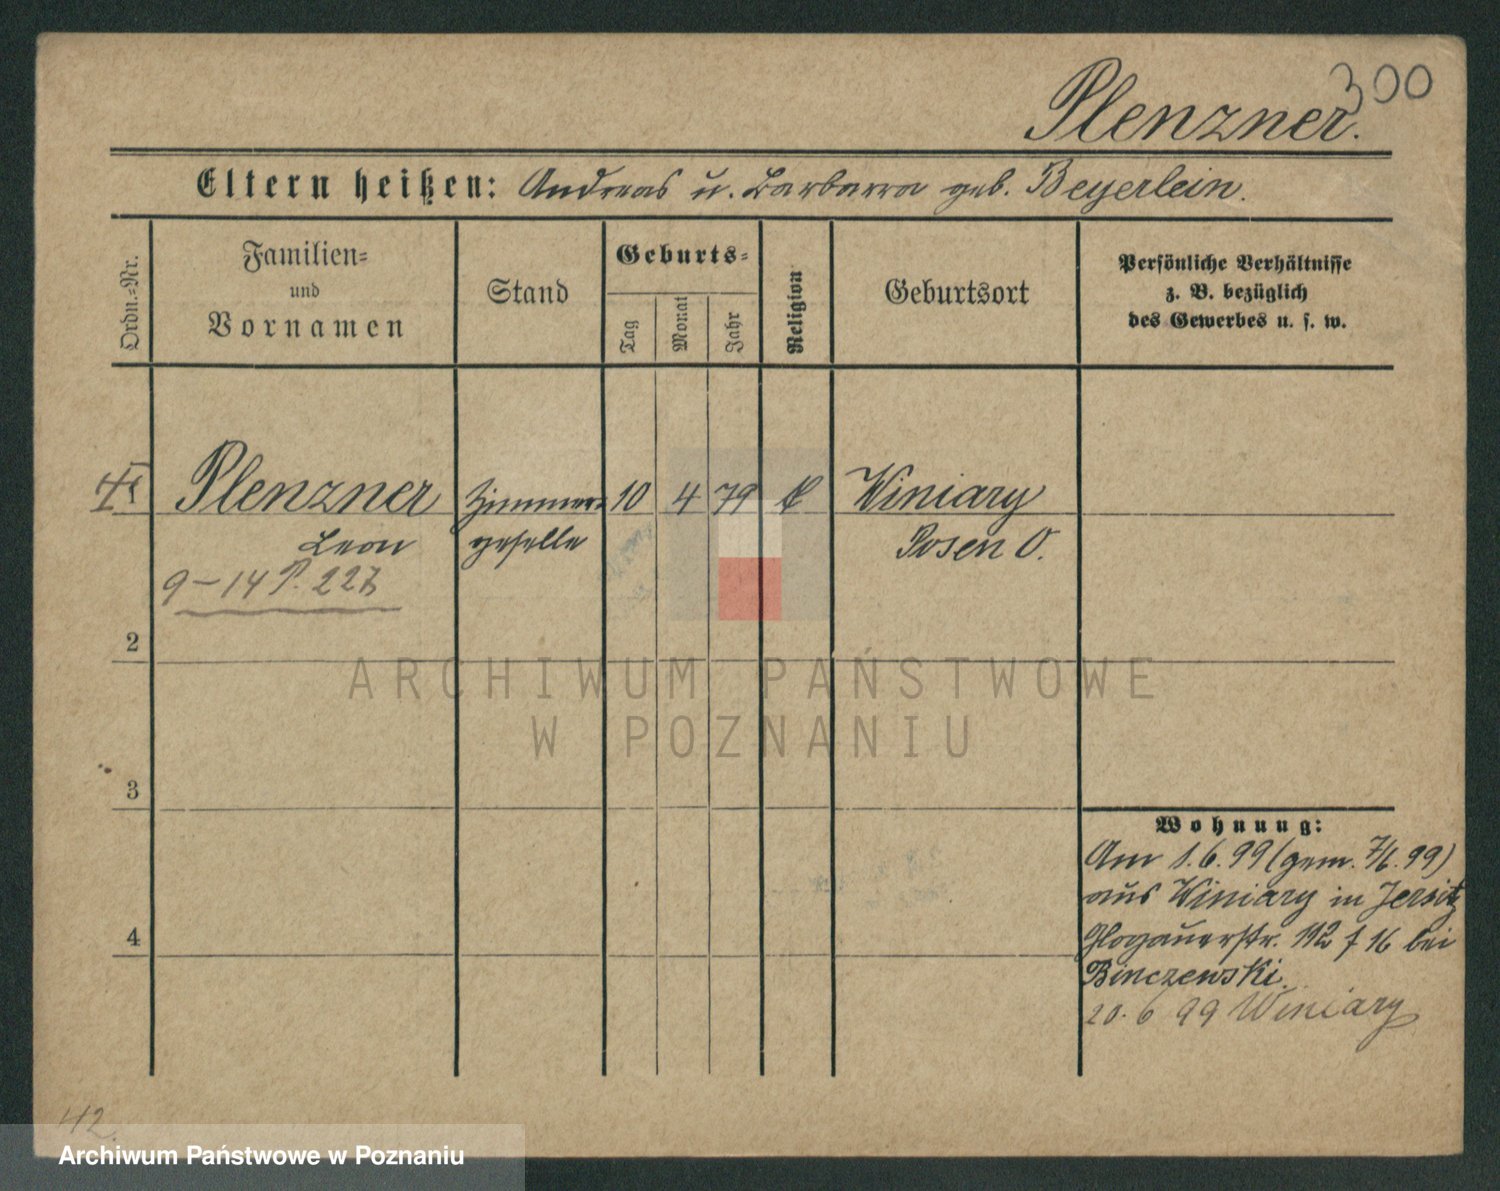 300
Plenzner.
Eltern heißen: Andreas u. Barbarra geb. Beyerlein.
Ordn.-Nr.
Familien-
und
Vornamen
Stand
Geburts-
Tag
Monat
Jahr
Religion
Geburtsort
Persönliche Verhältnisse
z. B. bezüglich
des Gewerbes u. s. w.
Plenzner Zimmer- 10 4 79 k Winiary
Leon geselle Posen O.
9-14 P. 227
2
3
4
Wohnung:
Am 1.6.99 (gem. 7/6.99)
aus Winiary in Jersitz
Glogauerstr. 112 f 16 bei
Binczewski.
20.6 99 Winiary
42.
ARCHIWUM PAŃSTWOWE
W POZNANIU
Archiwum Państwowe w Poznaniu